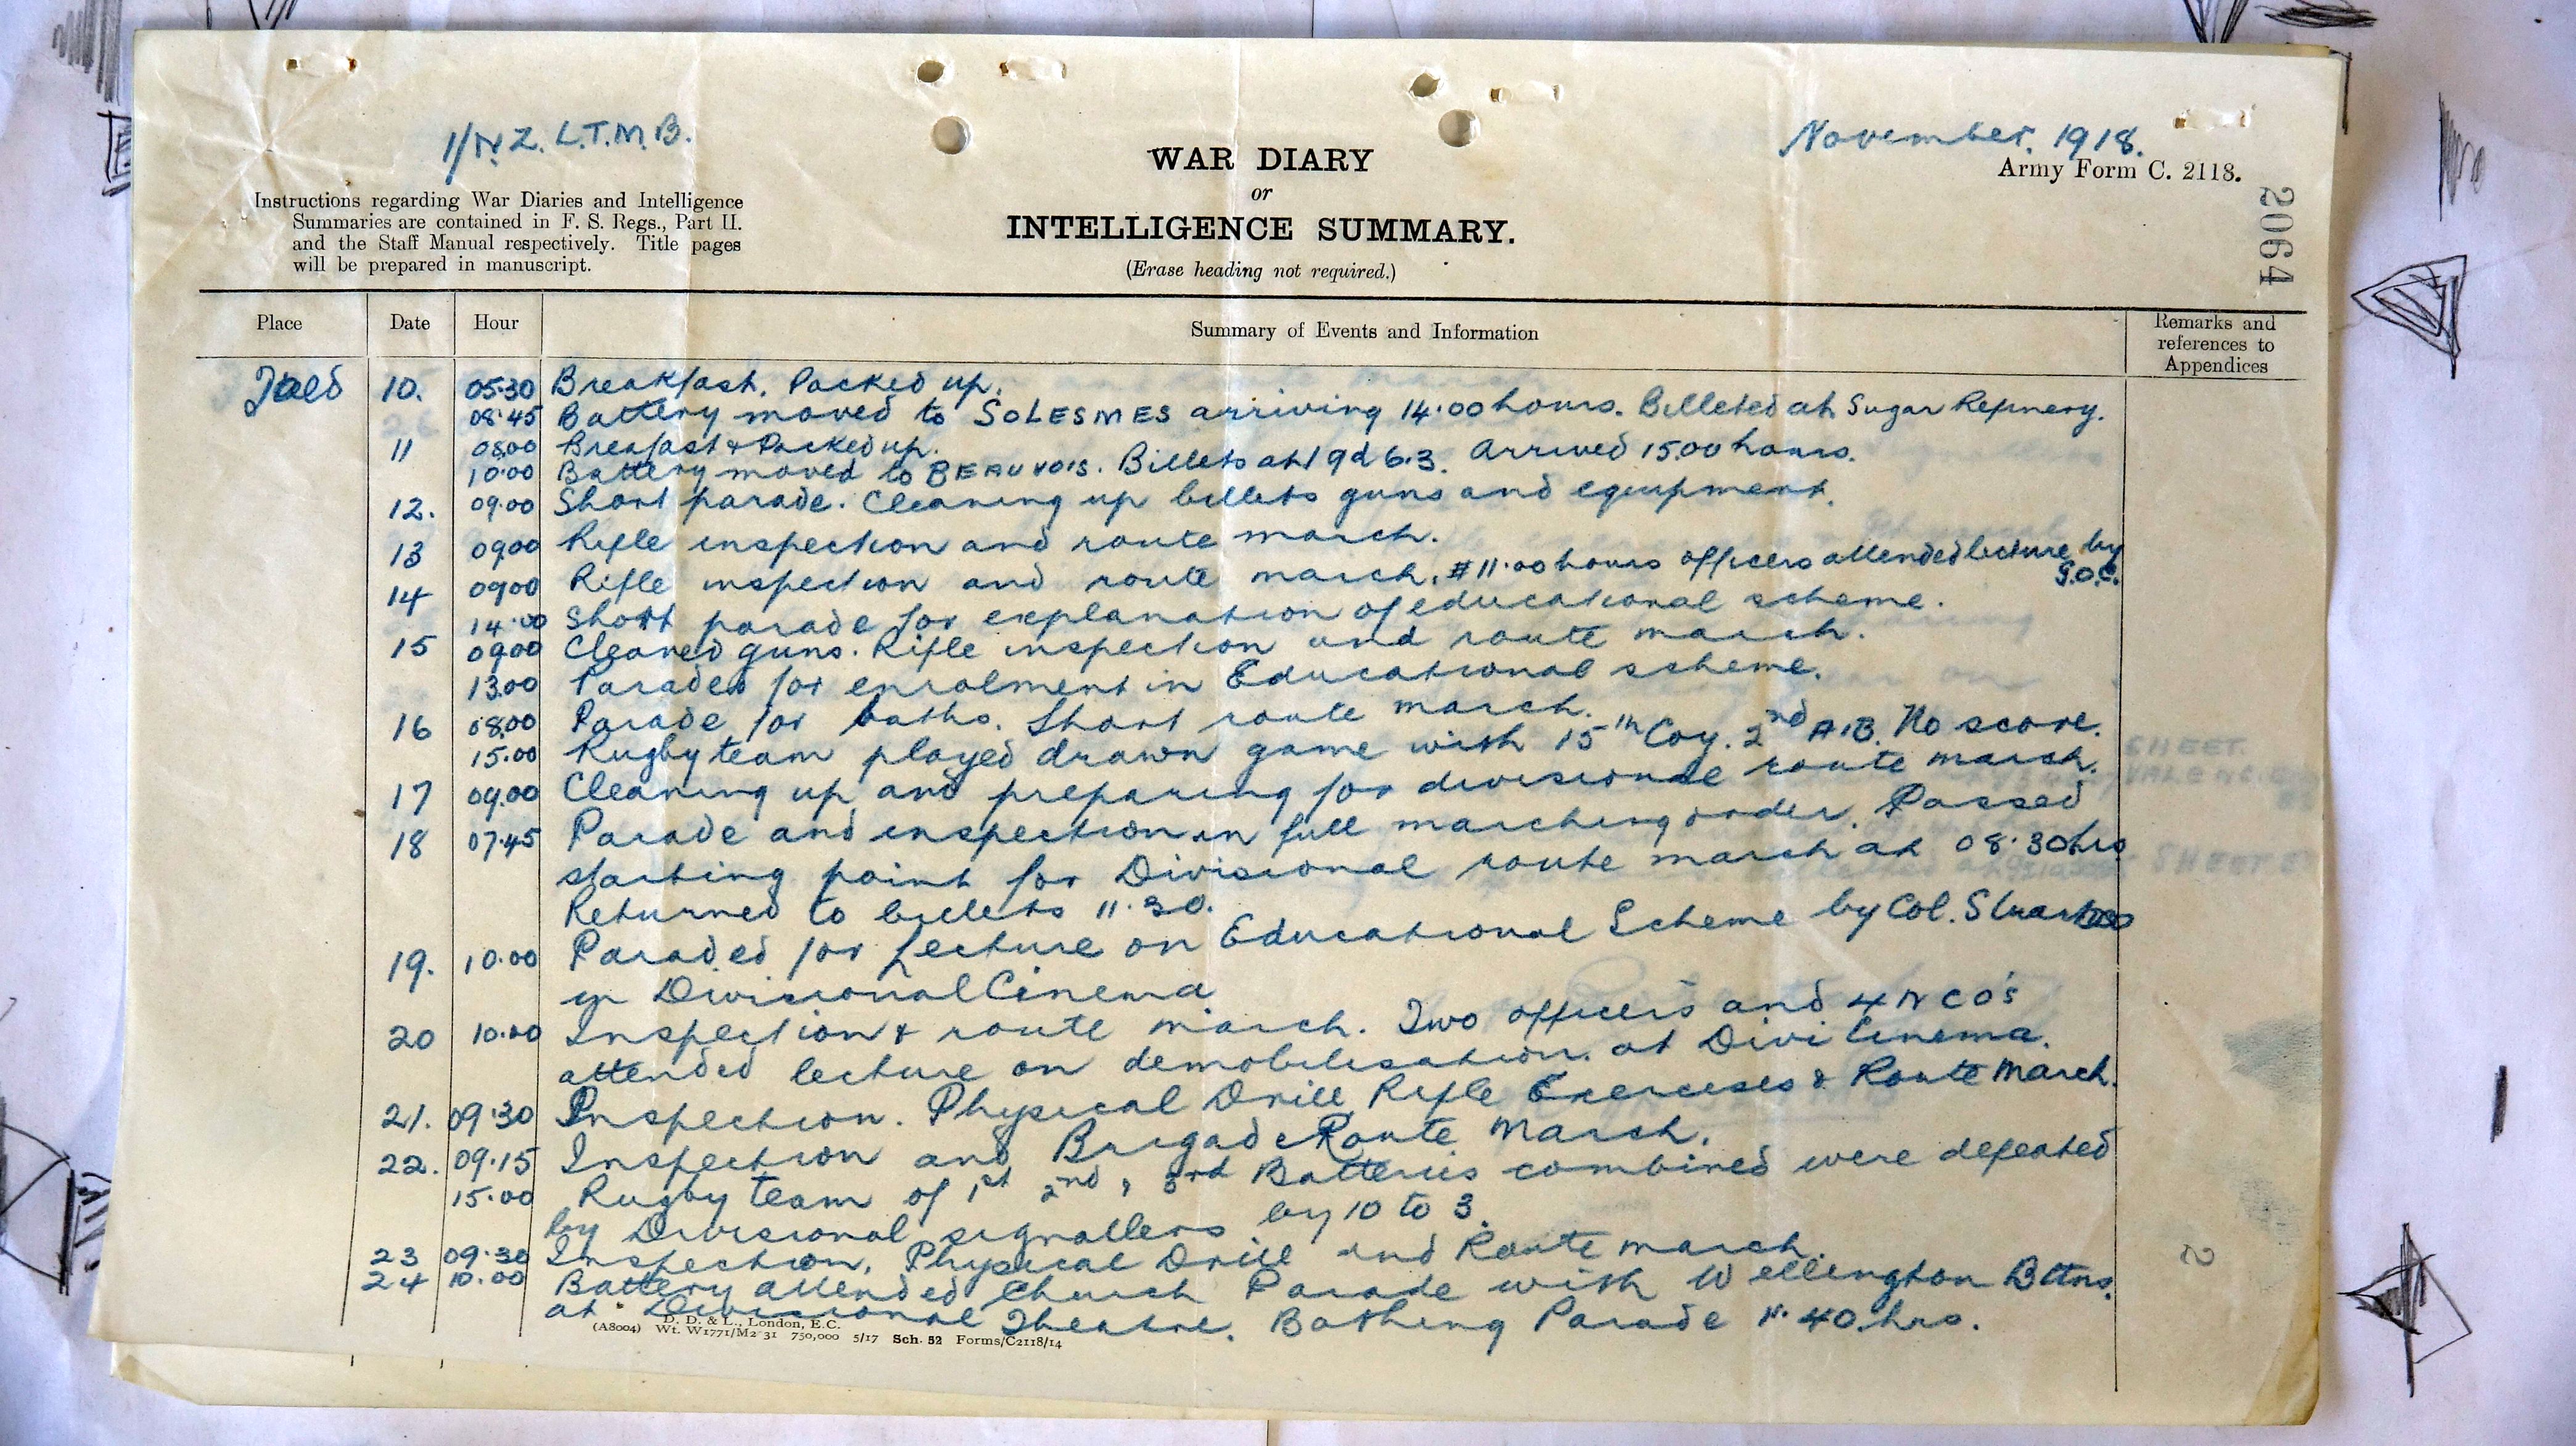 1/N.Z. L.T.M.B.
November. 1918.
Army Form C. 2118.
2064
WAR DIARY
or
INTELLIGENCE SUMMARY.
(Erase heading not required.)
Instructions regarding War Diaries and Intelligence
Summaries are contained in F. S. Regs., Part II.
and the Staff Manual respectively. Title pages
will be prepared in manuscript.
Place Date Hour Summary of Events and Information Remarks and references to Appendices
10. 05.30 Breakfast. Packed up.
08.45 Battery moved to SOLESMES arriving 14.00 hours. Billeted at Sugar Refinery.
11 08.00 Breafast & Packed up.
10.00 Battery moved to BEAUVOIS. Billets at I 9d 6.3. Arrived 15.00 hours.
12. 09.00 Short parade. Cleaning up billets guns and equipment.
13 09.00 Rifle inspection and route march.
14 09.00 Rifle inspection and route march. # 11.00 hours officers attended lecture by G.O.C.
14.00 Short parade for explanation of educational scheme.
15 09.00 Cleaned guns. Rifle inspection and route march.
13.00 Parades for enrolment in Educational scheme.
16 08.00 Parade for baths. Short route march.
15.00 Rugby team played drawn game with 15th Coy. 2nd A.B. No score.
17 09.00 Cleaning up and preparing for divisional route march.
18 07.45 Parade and inspection in full marching order. Passed
starting point for Divisional route march at 08.30 hrs
Returned to billets 11.30.
19. 10.00 Paraded for Lecture on Educational Scheme by Col. Stuart DSO
in Divisional Cinema
20 10.00 Inspection & route march. Two officers and 4 NCO's
attended lecture on demobilisation. at Divi Cinema.
21. 09.30 Inspection. Physical Drill Rifle Exercises & Route March.
22. 09.15 Inspection and Brigade Route March.
15.00 Rugby team of 1st 2nd, 3rd Batteries combined were defeated
by Divisional signallers by 10 to 3.
23 09.30 Inspection, Physical Drill and Route march.
24 10.00 Battery attended Church Parade with Wellington Bttns.
at Divisional Theatre. Bathing Parade 11.40 hrs.
D. D. & L., London, E.C.
(A8004) Wt. W1771/M2 31 750,000 5/17 Sch. 52 Forms/C2118/14
2